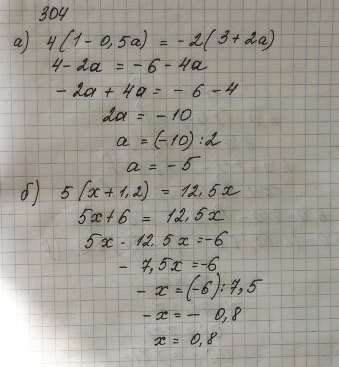 304
а) 4(1-0,5a) = -2(3+2a)
4-2a = -6-4a
-2a+4a = -6-4
2a = -10
a = (-10):2
a = -5
б) 5(x+1,2) = 12,5x
5x+6 = 12,5x
5x-12,5x=-6
-7,5x=-6
-x=(-6):7,5
-x=- 0,8
x=0,8